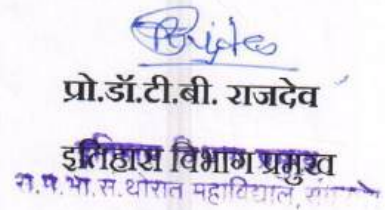 प्रो.डॉ.टी.बी. राजदेव
इतिहास विभाग प्रमुख
भा.स.थोरात महाविद्यालय,